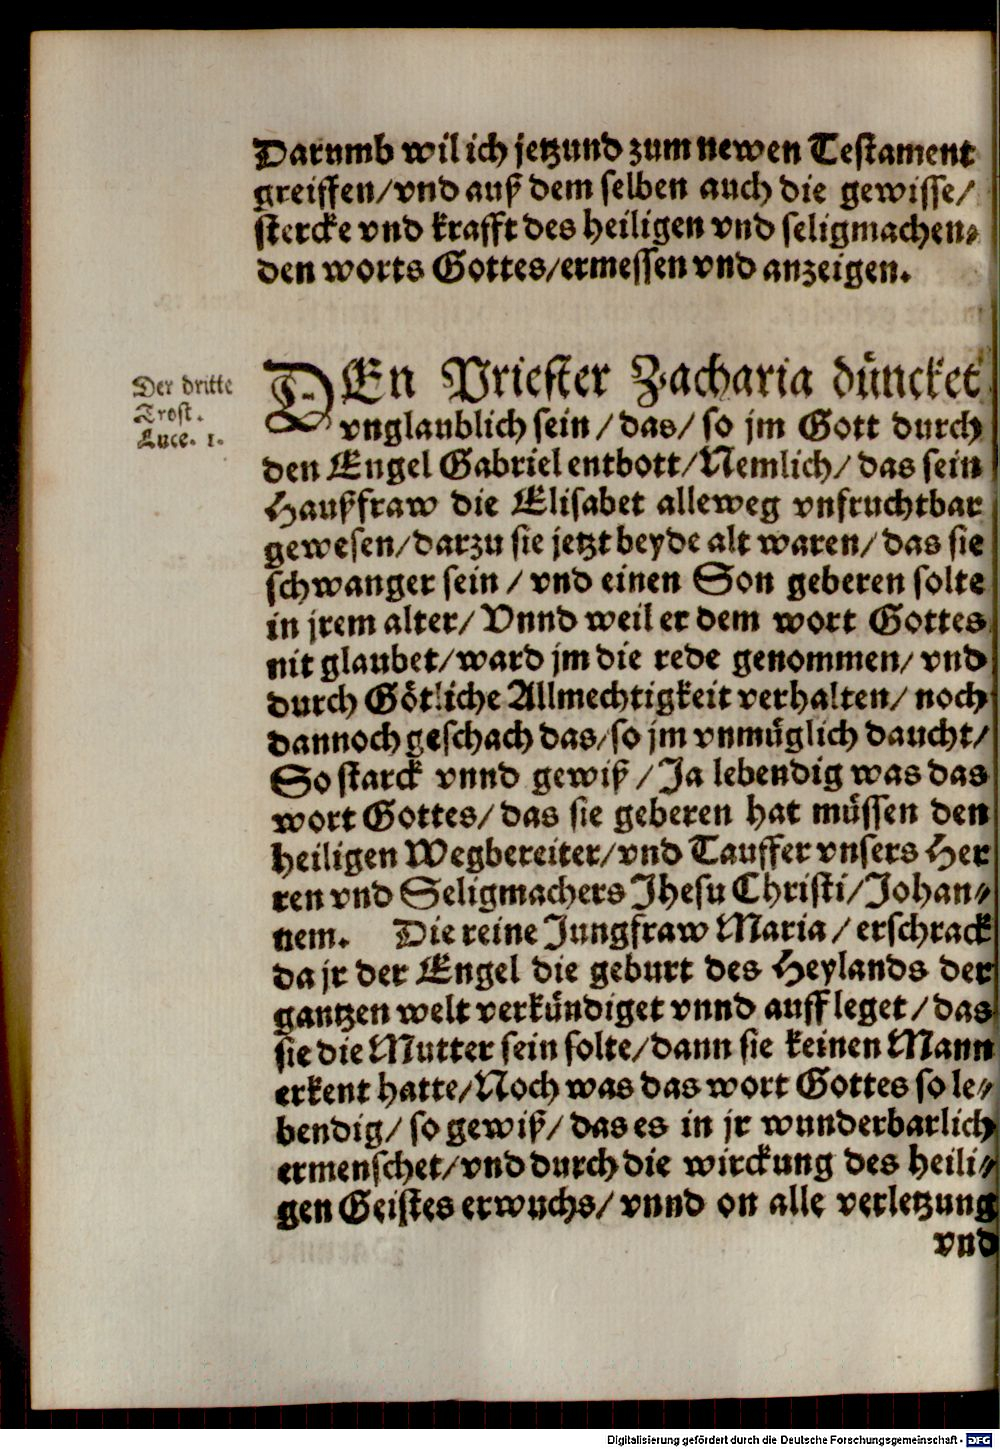 Darumb wil ich jetzund zum newen Testament
greiffen/vnd auß dem selben auch die gewisse/
stercke vnd krafft des heiligen vnd seligmachen⸗
den worts Gottes/ermessen vnd anzeigen.
Der dritte
Trost.
Luce. 1.
DEn Priester Zacharia düncket
vnglaublich sein/das/so jm Gott durch
den Engel Gabriel entbott/Nemlich/das sein
Haußfraw die Elisabet alleweg vnfruchtbar
gewesen/darzu sie jetzt beyde alt waren/das sie
schwanger sein/vnd einen Son geberen solte
in jrem alter/Vnnd weil er dem wort Gottes
nit glaubet/ward jm die rede genommen/vnd
durch Götliche Allmechtigkeit verhalten/noch
dannoch geschach das/so jm vnmüglich daucht/
So starck vnnd gewiß/Ja lebendig was das
wort Gottes/das sie geberen hat müssen den
heiligen Wegbereiter/vnd Tauffer vnsers Her
ren vnd Seligmachers Jhesu Christi/Johan⸗
nem. Die reine Jungfraw Maria/erschrack
da jr der Engel die geburt des Heylands der
gantzen welt verkündiget vnnd auff leget/das
sie die Mutter sein solte/dann sie keinen Mann
erkent hatte/Noch was das wort Gottes so le⸗
bendig/so gewiß/das es in jr wunderbarlich
ermenschet/vnd durch die wirckung des heili⸗
gen Geistes erwuchs/vnnd on alle verletzung
vnd
Digitalisierung gefördert durch die Deutsche Forschungsgemeinschaft - DFG